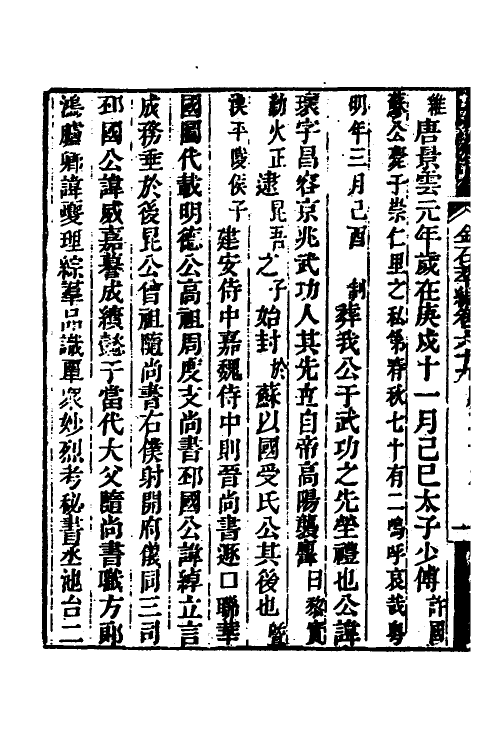 維唐景雲元年歲在庚戌十一月己巳太子少傅許國
蘇公薨于崇仁里之私第春秋七十有二嗚呼哀哉粵
明年三月己酉制葬我公于武功之先塋禮也公諱
瓌字昌容京兆武功人其先自帝高陽襲日黎實
勳火正逮昆吾之子始封於蘇以國受氏公其後也暨
侯平陵侯子建安侍中嘉魏侍中則晉尚書遜口聯華
國圖代載明德公高祖周度支尚書邳國公諱綽立言
成務垂於後昆公曾祖隨尚書右僕射開府儀同三司
邳國公諱威嘉謩成績懿于當代大父隨尚書職方郎
鴻臚卿諱夔理綜羣品識單衆妙烈考秘書丞池台二
金石萃編卷六十九